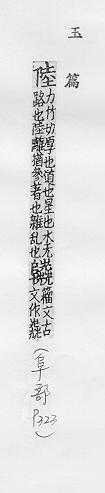 玉篇
陸 力竹切厚也道也星也
路也陸離猶參差也雜亂也
籀文古
文作
(阜部 P323)